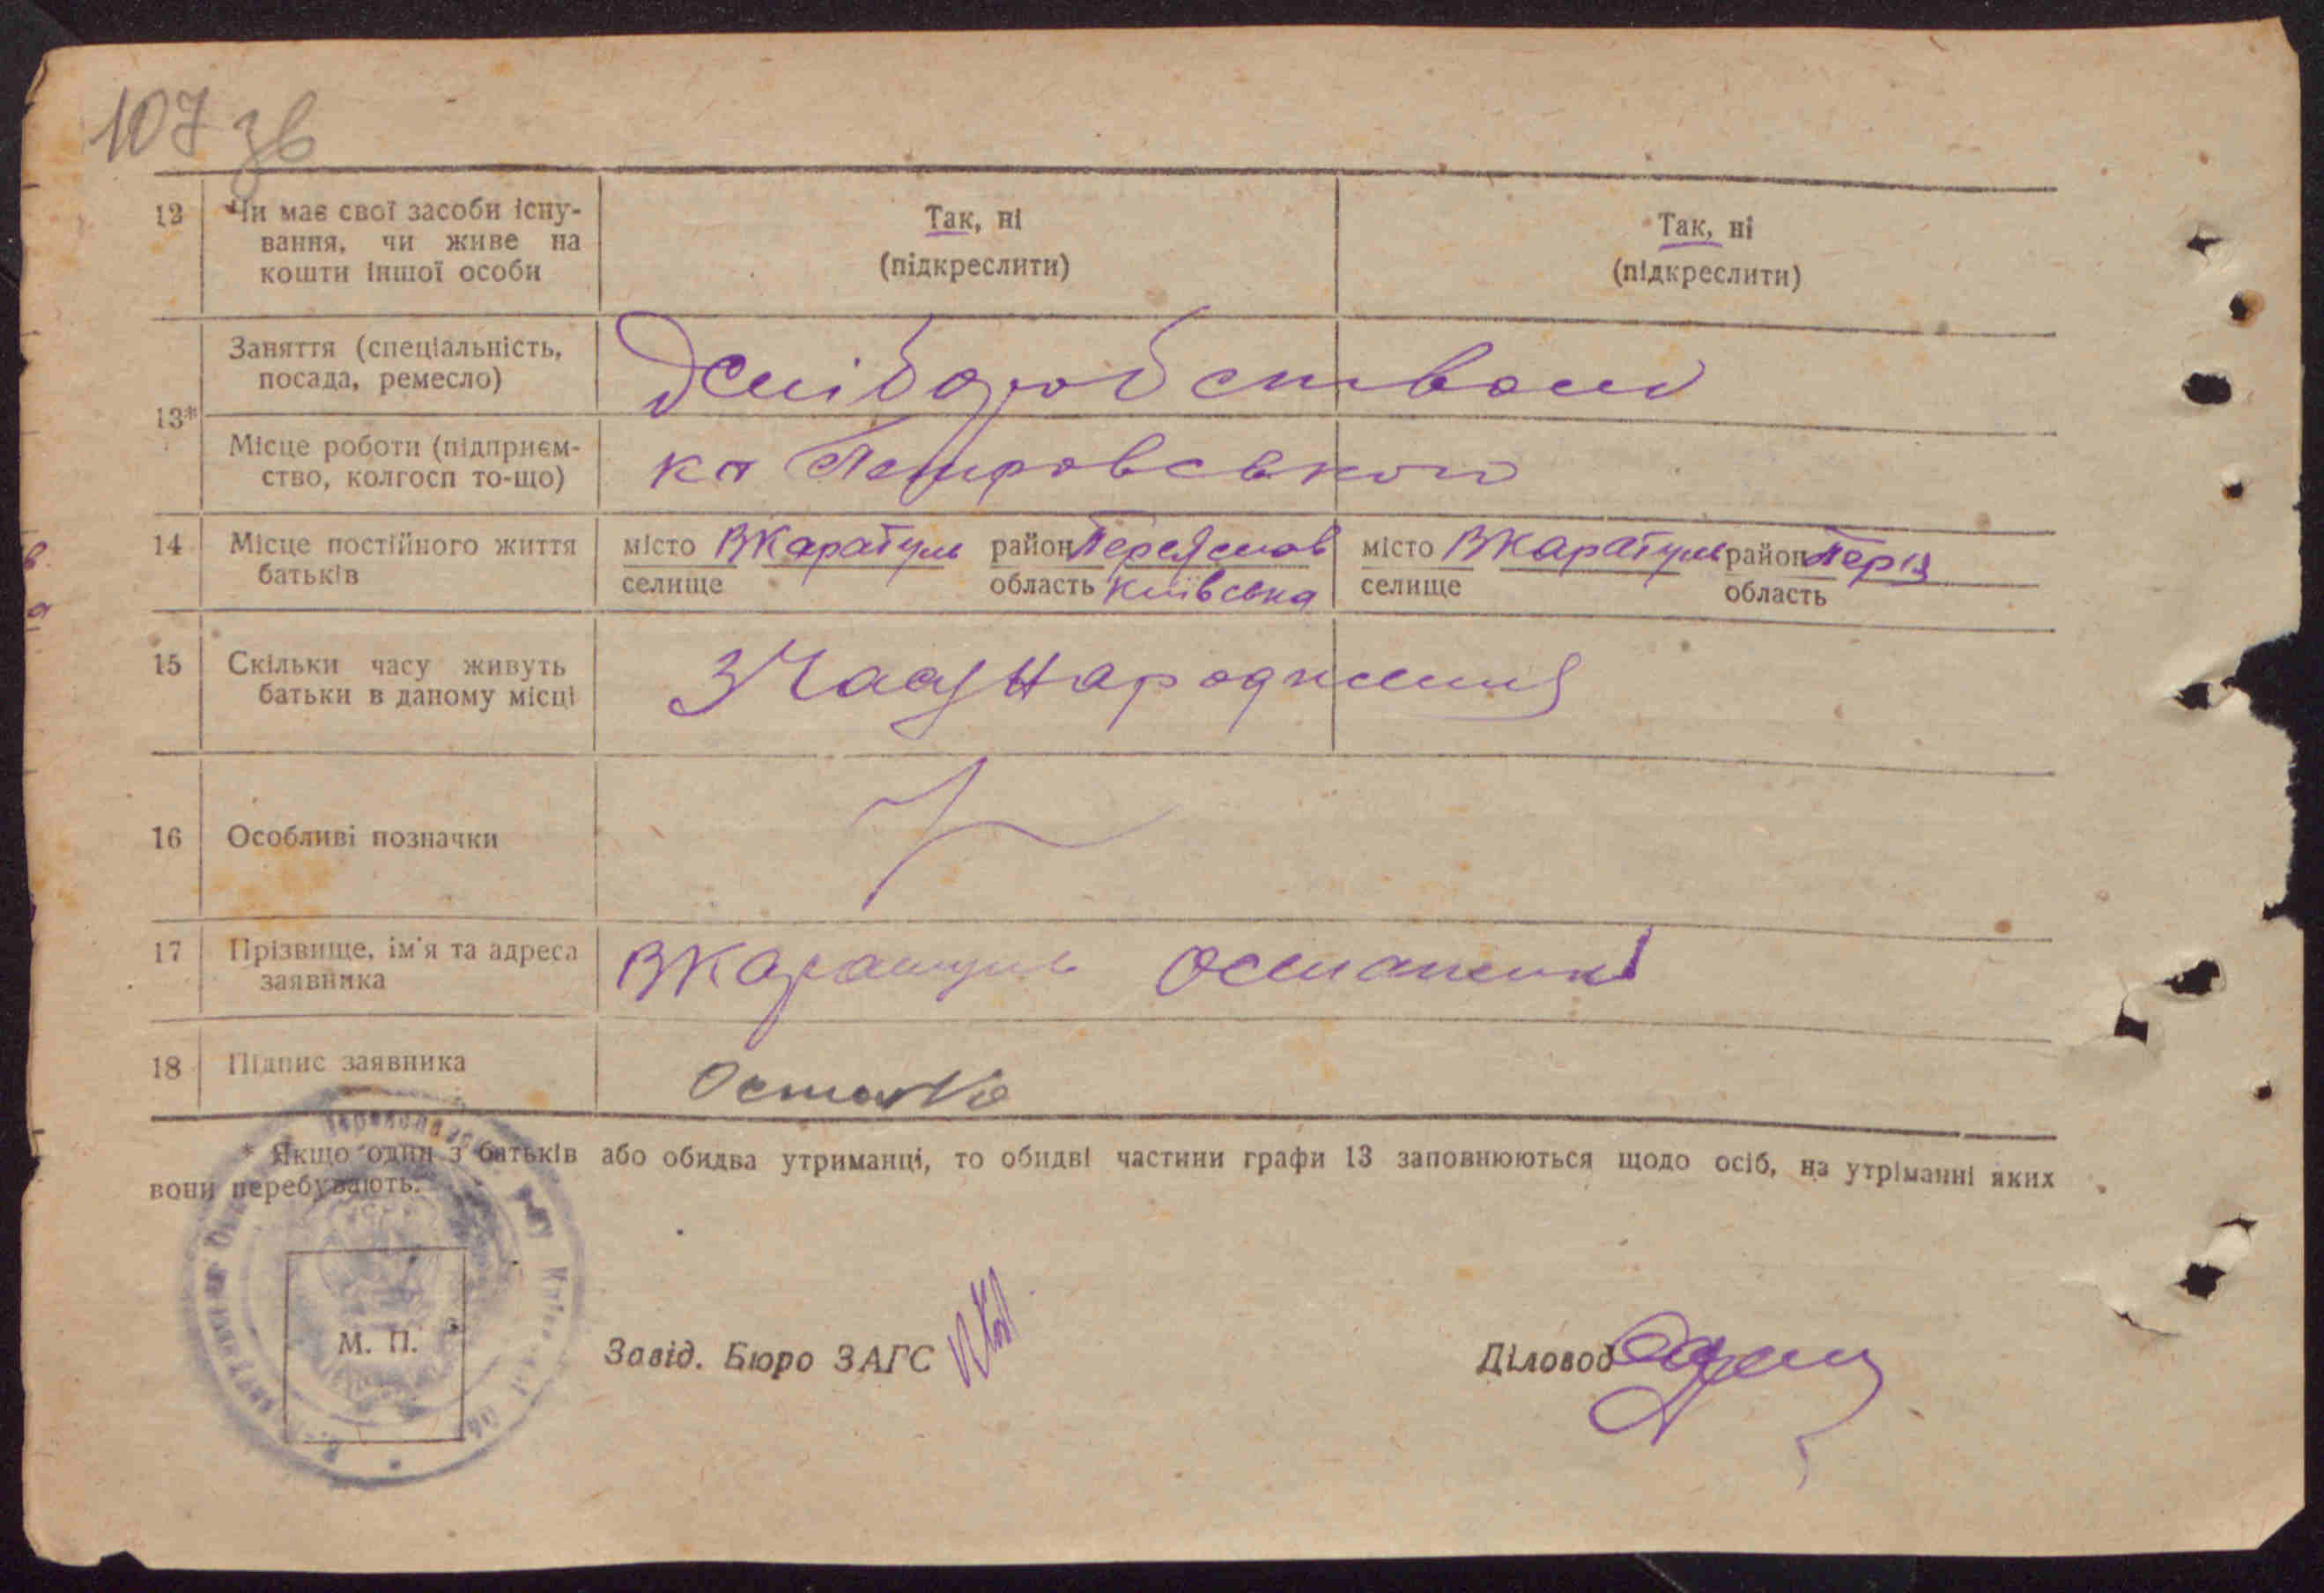 107 зв
12 Чи має свої засоби існу-
вання, чи живе на
кошти іншої особи
Так, ні
(підкреслити)
Так, ні
(підкреслити)
13*
Заняття (спеціальність,
посада, ремесло)
Місце роботи (підприєм-
ство, колгосп то-що)
Петровського
14 Місце постійного життя
батьків
місто ВКаратуль район Переяслов
селище область Київська
місто ВКаратуль район Перея
селище область
15 Скільки часу живуть
батьки в даному місці
З Часу Народження
16 Особливі позначки
17 Прізвище, ім'я та адреса
заявника
ВКаратуль
18 Підпис заявника
* Якщо один з батьків або обидва утриманці, то обидві частини графи 13 заповнюються щодо осіб, на утріманні яких
вони перебувають.
М. П.
Завід. Бюро ЗАГС
Діловод